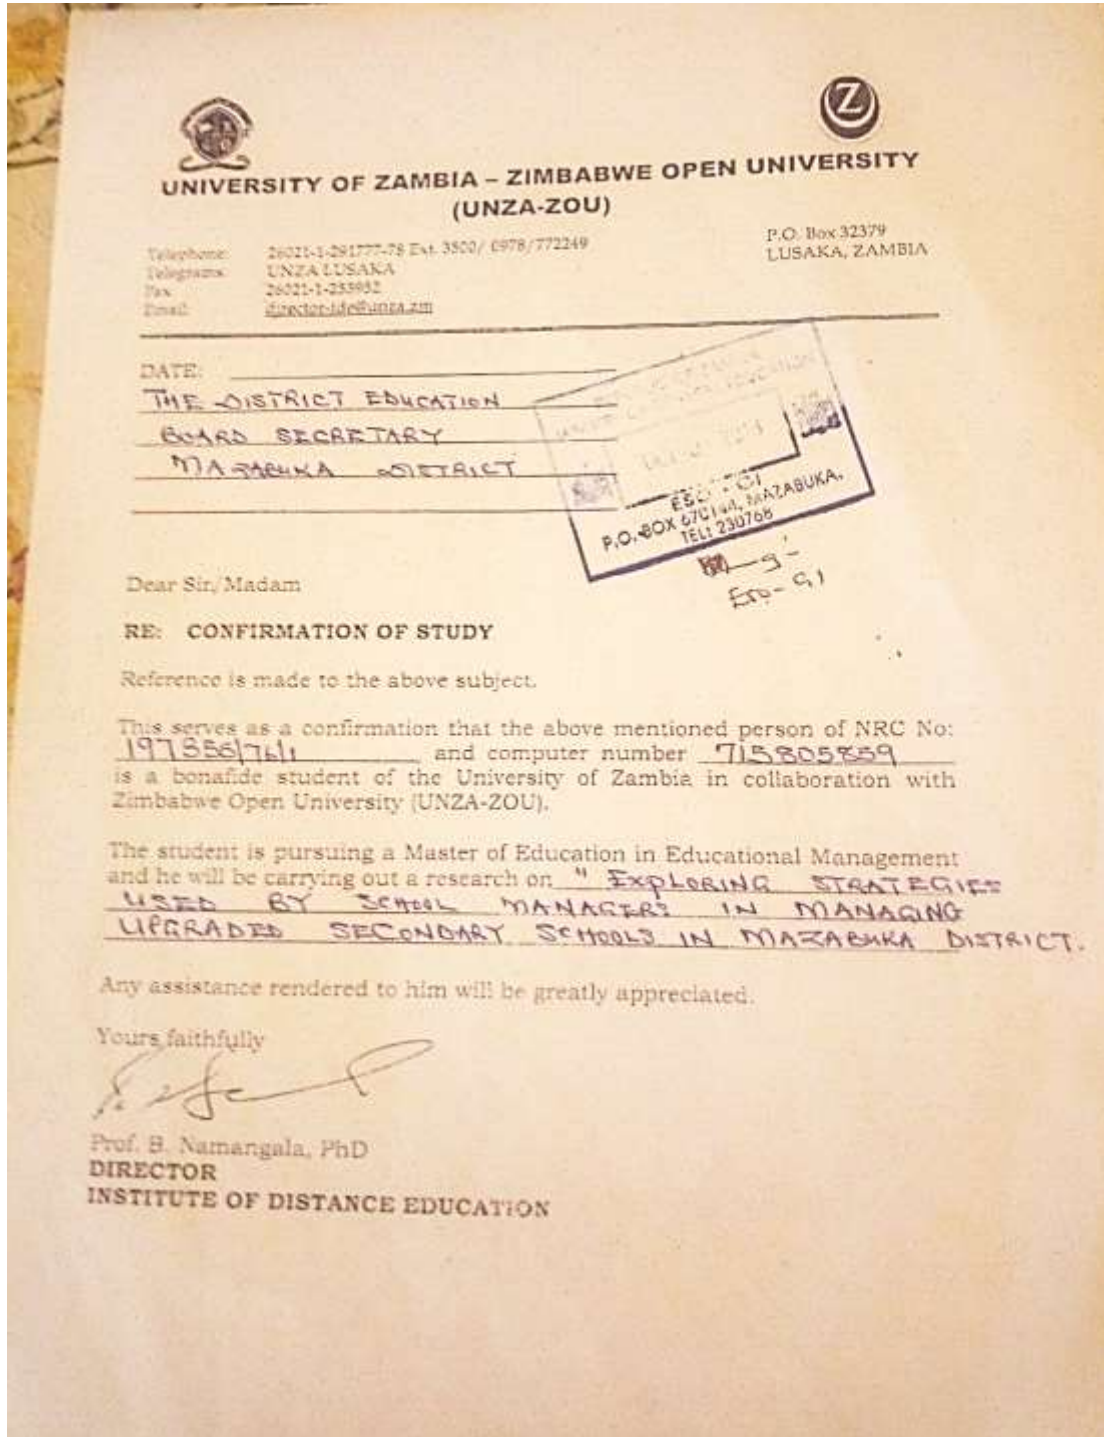 Z
UNIVERSITY OF ZAMBIA – ZIMBABWE OPEN UNIVERSITY
(UNZA-ZOU)
Telephone: 26021-1-291777-78 Ext. 3500/ 0978/772249
Telegrams: UNZA LUSAKA
Fax 26021-1-253952
Email: director-ide@unza.zm
P.O. Box 32379
LUSAKA, ZAMBIA
DATE:
THE DISTRICT EDUCATION
BOARD SECRETARY
MAZABUKA DISTRICT
P.O. BOX MAZABUKA.
TEL: 230768
Dear Sir/Madam
RE: CONFIRMATION OF STUDY
Reference is made to the above subject.
This serves as a confirmation that the above mentioned person of NRC No:
and computer number 715805859
is a bonafide student of the University of Zambia in collaboration with
Zimbabwe Open University (UNZA-ZOU).
The student is pursuing a Master of Education in Educational Management
and he will be carrying out a research on " EXPLORING STRATEGIES
USED BY SCHOOL MANAGERS IN MANAGING
UPGRADED SECONDARY SCHOOLS IN MAZABUKA DISTRICT.
Any assistance rendered to him will be greatly appreciated.
Yours faithfully
Prof. B. Namangala, PhD
DIRECTOR
INSTITUTE OF DISTANCE EDUCATION